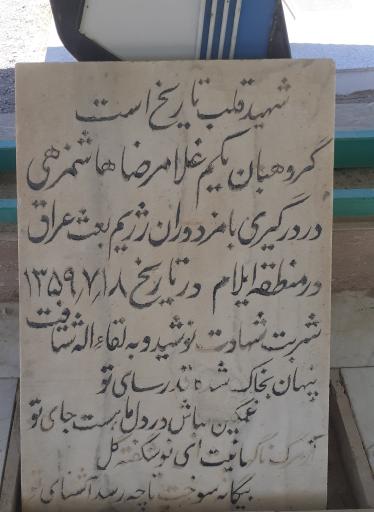 شهید قلب تاریخ است
گروهبان یکم غلامرضا هاشمزهی
در درگیری با مزدوران رژیم بعث عراق
در منطقه ایلام در تاریخ ۱۳۵۹٫۷٫۱۸
شربت شهادت نوشید و به لقاء اله شتافت
پنهان بخاک شده قد رسای تو
غمگین مباش در دل ما هست جای تو
از مرگ ناگهانیت ای نوشگفته گل
بیگانه سوخت تا چه رسد آشنای تو